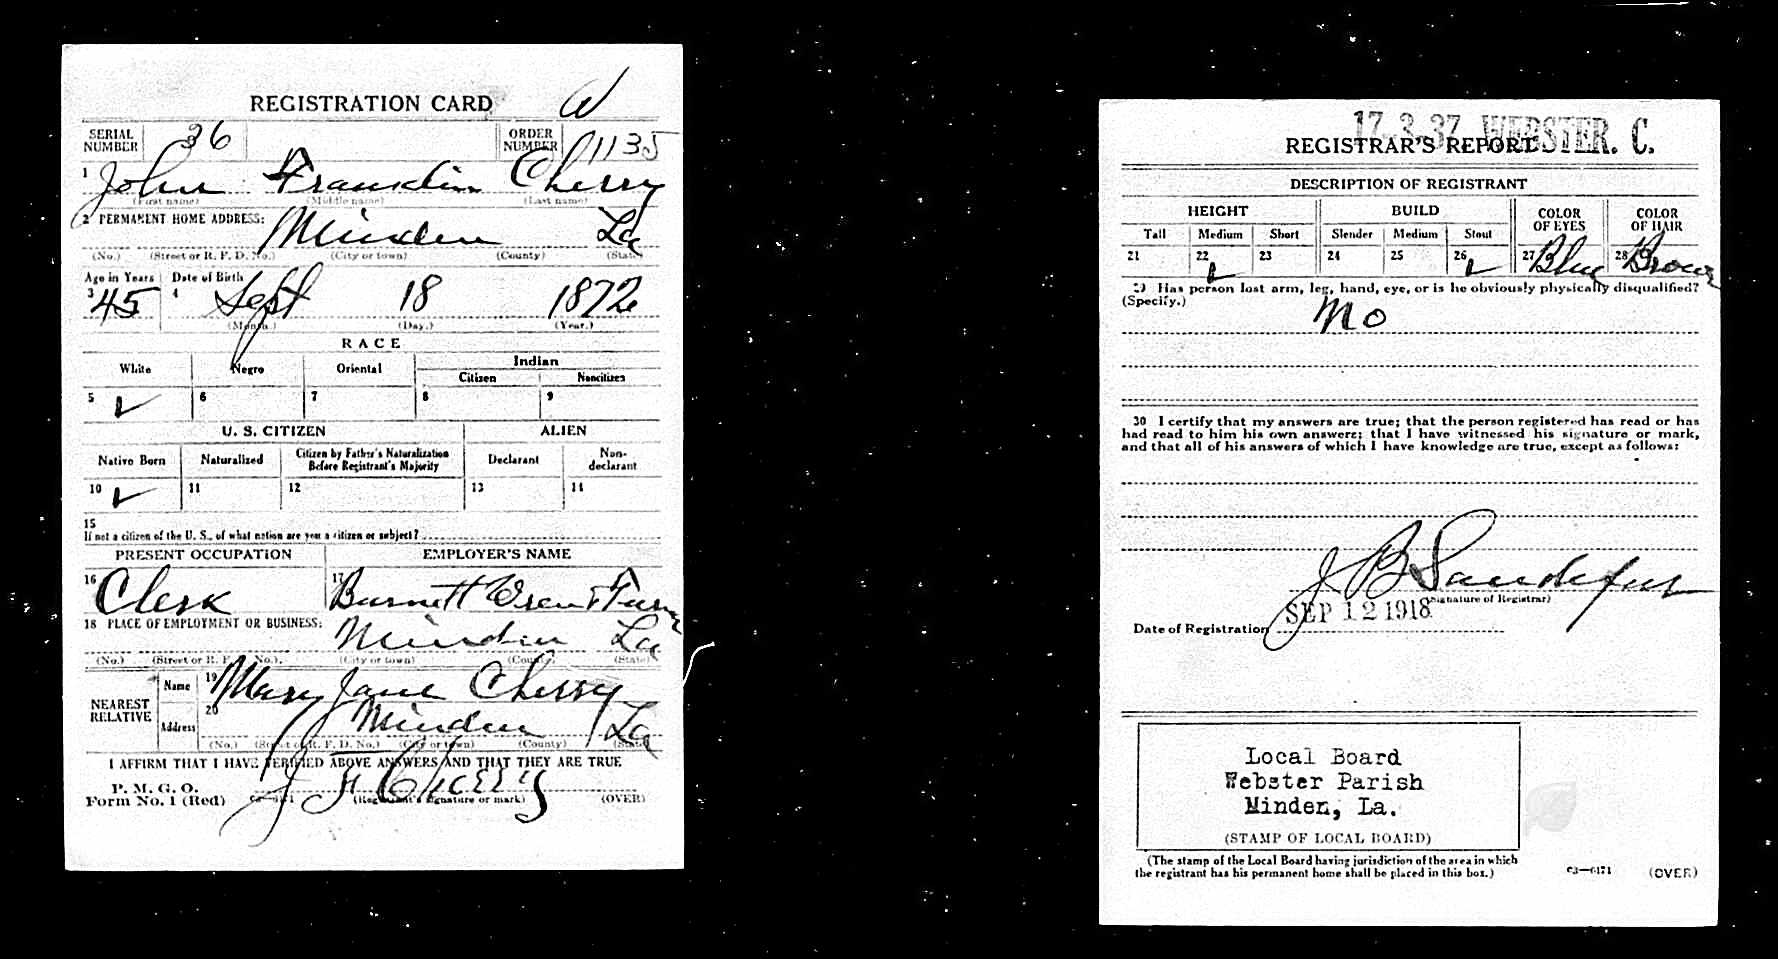 REGISTRATION CARD
SERIAL NUMBER 36 ORDER NUMBER 1135
1 John Franklin Cherry
(First name) (Middle name) (Last name)
2 PERMANENT HOME ADDRESS:
Minden La
(No.) (Street or R. F. D. No.) (City or town) (County) (State)
Age in Years Date of Birth
3 45 4 Sept 18 1872
(Month.) (Day.) (Year.)
RACE
White Negro Oriental Indian
Citizen Noncitizen
5 ✓ 6 7 8 9
U. S. CITIZEN ALIEN
Native Born Naturalized Citizen by Father's Naturalization Before Registrant's Majority Declarant Non-declarant
10 ✓ 11 12 13 14
15
If not a citizen of the U. S., of what nation are you a citizen or subject?
PRESENT OCCUPATION EMPLOYER'S NAME
16 Clerk 17 Burnett
18 PLACE OF EMPLOYMENT OR BUSINESS:
Minden La
(No.) (Street or R. F. D. No.) (City or town) (County) (State)
NEAREST RELATIVE
Name 19 Mary Jane Cherry
Address 20 Minden La
(No.) (Street or R. F. D. No.) (City or town) (County) (State)
I AFFIRM THAT I HAVE VERIFIED ABOVE ANSWERS AND THAT THEY ARE TRUE
P. M. G. O.
Form No. 1 (Red) J F Cherry
(Registrant's signature or mark) (OVER)
17-3-37 WEBSTER. C.
REGISTRAR'S REPORT
DESCRIPTION OF REGISTRANT
HEIGHT BUILD COLOR OF EYES COLOR OF HAIR
Tall Medium Short Slender Medium Stout
21 22 ✓ 23 24 25 26 ✓ 27 Blue 28 Brown
29 Has person lost arm, leg, hand, eye, or is he obviously physically disqualified?
(Specify.) No
30 I certify that my answers are true; that the person registered has read or has
had read to him his own answers; that I have witnessed his signature or mark,
and that all of his answers of which I have knowledge are true, except as follows:
J B Sandefur
(Signature of Registrar)
Date of Registration SEP 12 1918
Local Board
Webster Parish
Minden, La.
(STAMP OF LOCAL BOARD)
(The stamp of the Local Board having jurisdiction of the area in which
the registrant has his permanent home shall be placed in this box.)
03—6171 (OVER)